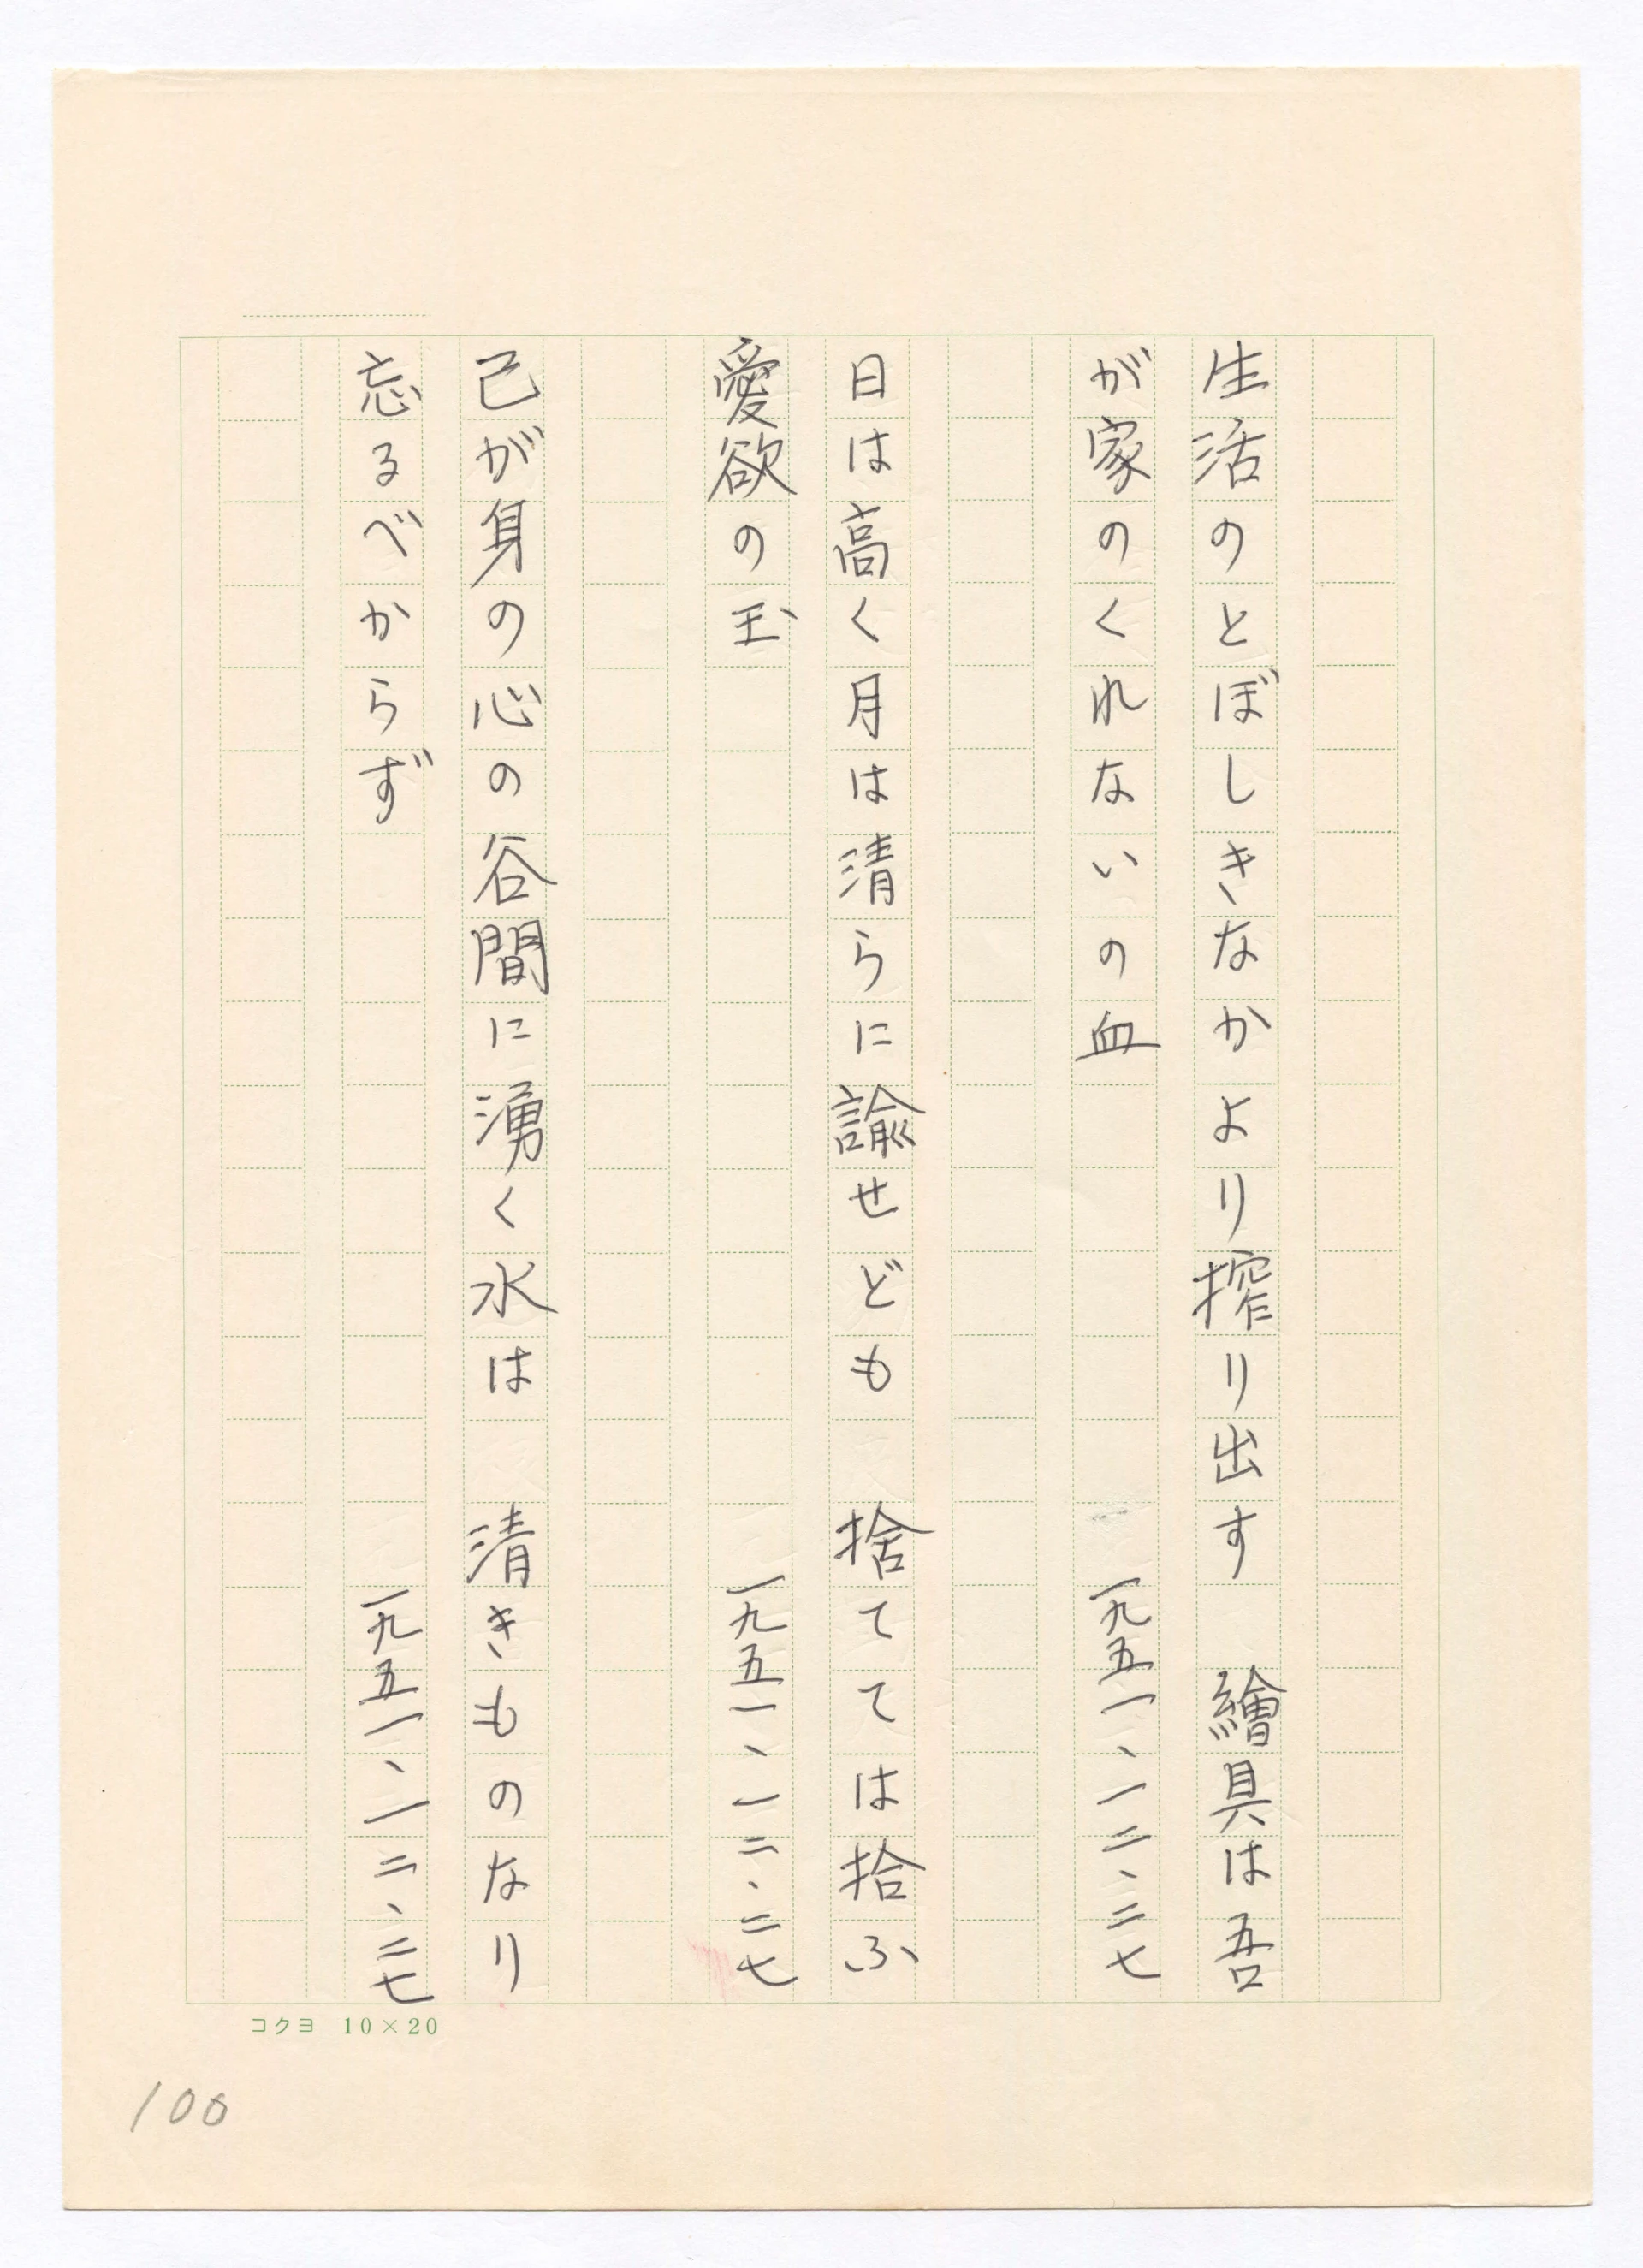 生活のとぼしきなかより搾り出す　繪具は吾
が家のくれないの血　一九五一、一二、二七
日は高く月は清らに諭せども　捨てては拾ふ
愛欲の玉　一九五一、一二、二七
己が身の心の谷間に湧く水は　清きものなり
忘るべからず　一九五一、一二、二七
コクヨ 10×20
100